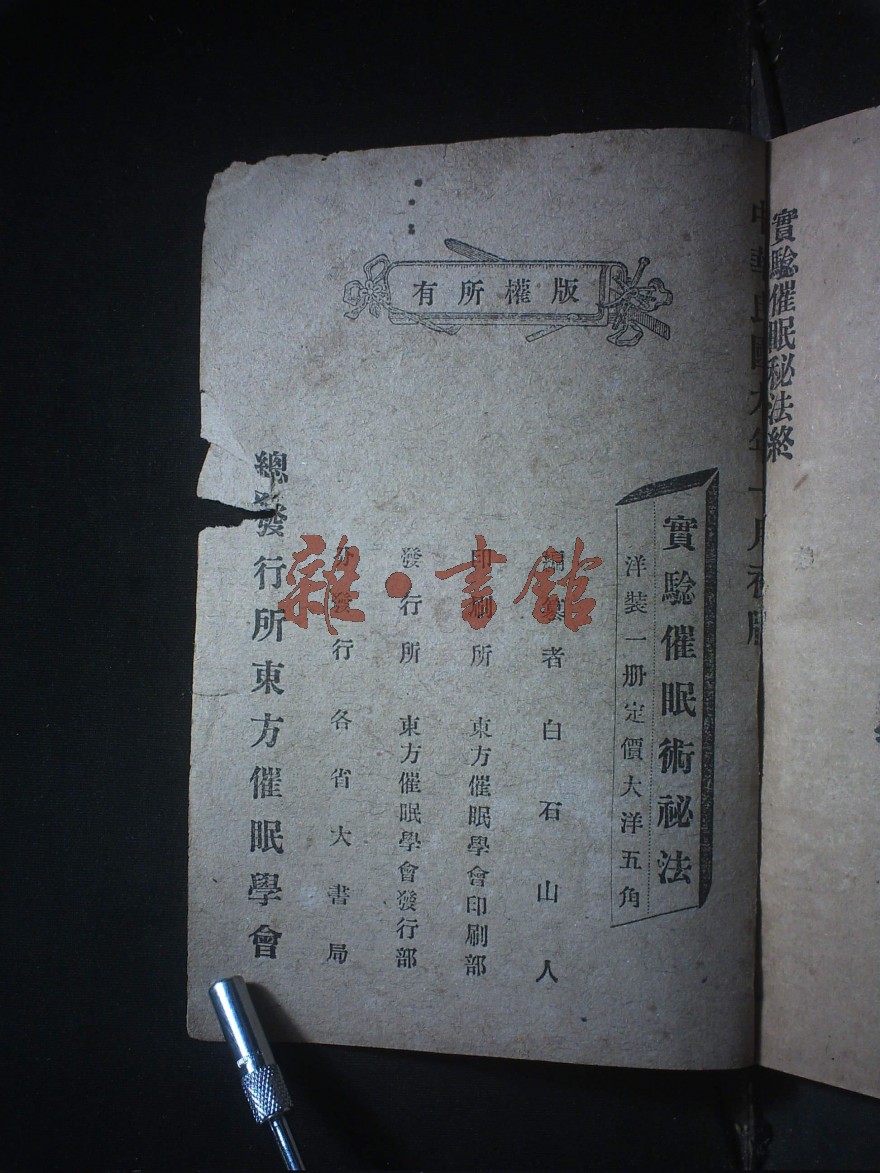 實騐催眠秘法終
中華民國年一月初版
版權所有
實騐催眠術祕法
洋裝一册定價大洋五角
編纂者 白石山人
印刷所 東方催眠學會印刷部
發行所 東方催眠學會發行部
分發行 各省大書局
總發行所東方催眠學會
雜·書館